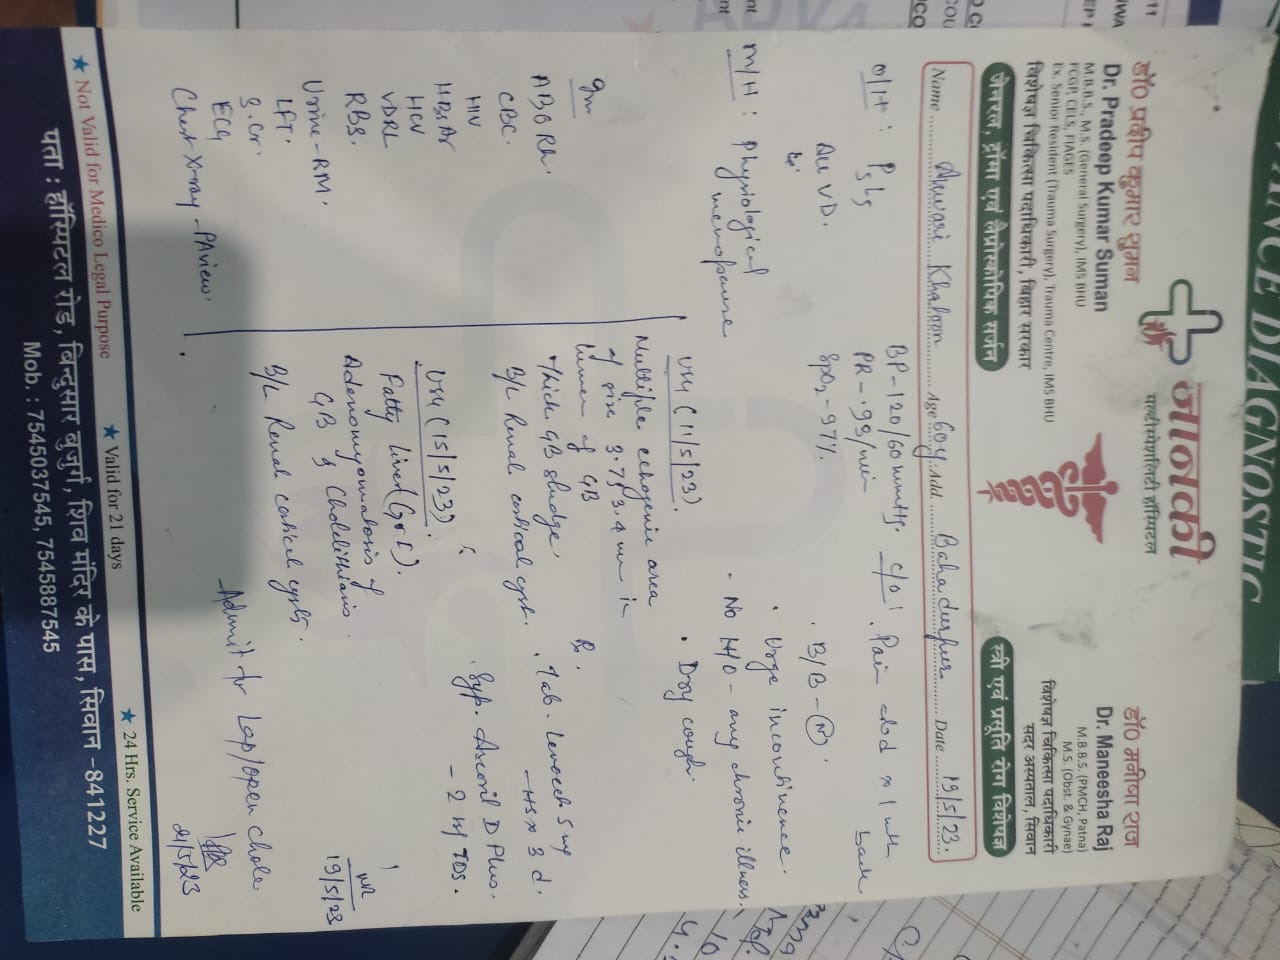 VANCE DIAGNOSTIC
जानकी
मल्टीस्पेशलिटी हॉस्पिटल
डॉ० प्रदीप कुमार सुमन
Dr. Pradeep Kumar Suman
M.B.B.S., M.S. (General Surgery), IMS BHU
FCGP, CELS, FIAGES
Ex. Senior Resident (Trauma Surgery), Trauma Centre, IMS BHU
विशेषज्ञ चिकित्सा पदाधिकारी, बिहार सरकार
जेनरल, ट्रॉमा एवं लैप्रोस्कोपिक सर्जन
डॉ० मनीषा राज
Dr. Maneesha Raj
M.B.B.S. (PMCH, Patna)
M.S. (Obst. & Gynae)
विशेषज्ञ चिकित्सा पदाधिकारी
सदर अस्पताल, सिवान
स्त्री एवं प्रसूति रोग विशेषज्ञ
Name Khatoon Age 60y Add. Bahadurpur Date 19/5/23
O/H: P5L5
All VD.
M/H: Physiological
menopause
BP-120/60 mmHg.
PR-98/min
SpO2-97%
C/O:
Pain abd x 1 mth
B/B-(N).
Urge incontinence.
No H/O- any chronic illness.
Dry cough.
ABO Rh.
CBC.
HIV
HBsAg
HCV
VDRL
RBS.
Urine-RM.
LFT.
S.Cr.
ECG
Chest X-ray-PA view.
USG (11/5/23).
Multiple echogenic area
of size 3.7, 3.4 mm in
lumen of GB
Thick GB sludge.
B/L Renal cortical cyst.
USG (15/5/23)
Fatty liver (Gr I).
Adenomyomatosis of
GB & Cholelithiasis.
B/L Renal cortical cysts.
R.
Tab. Levocet 5 mg
-HS x 3 d.
Syp. Ascoril D Plus.
-2 TDS.
19/5/23
Admit for Lap/open chole
21/5/23
★ Not Valid for Medico Legal Purpose ★ Valid for 21 days ★ 24 Hrs. Service Available
पता : हॉस्पिटल रोड, बिन्दुसार बुजुर्ग, शिव मंदिर के पास, सिवान -841227
Mob. : 7545037545, 7545887545